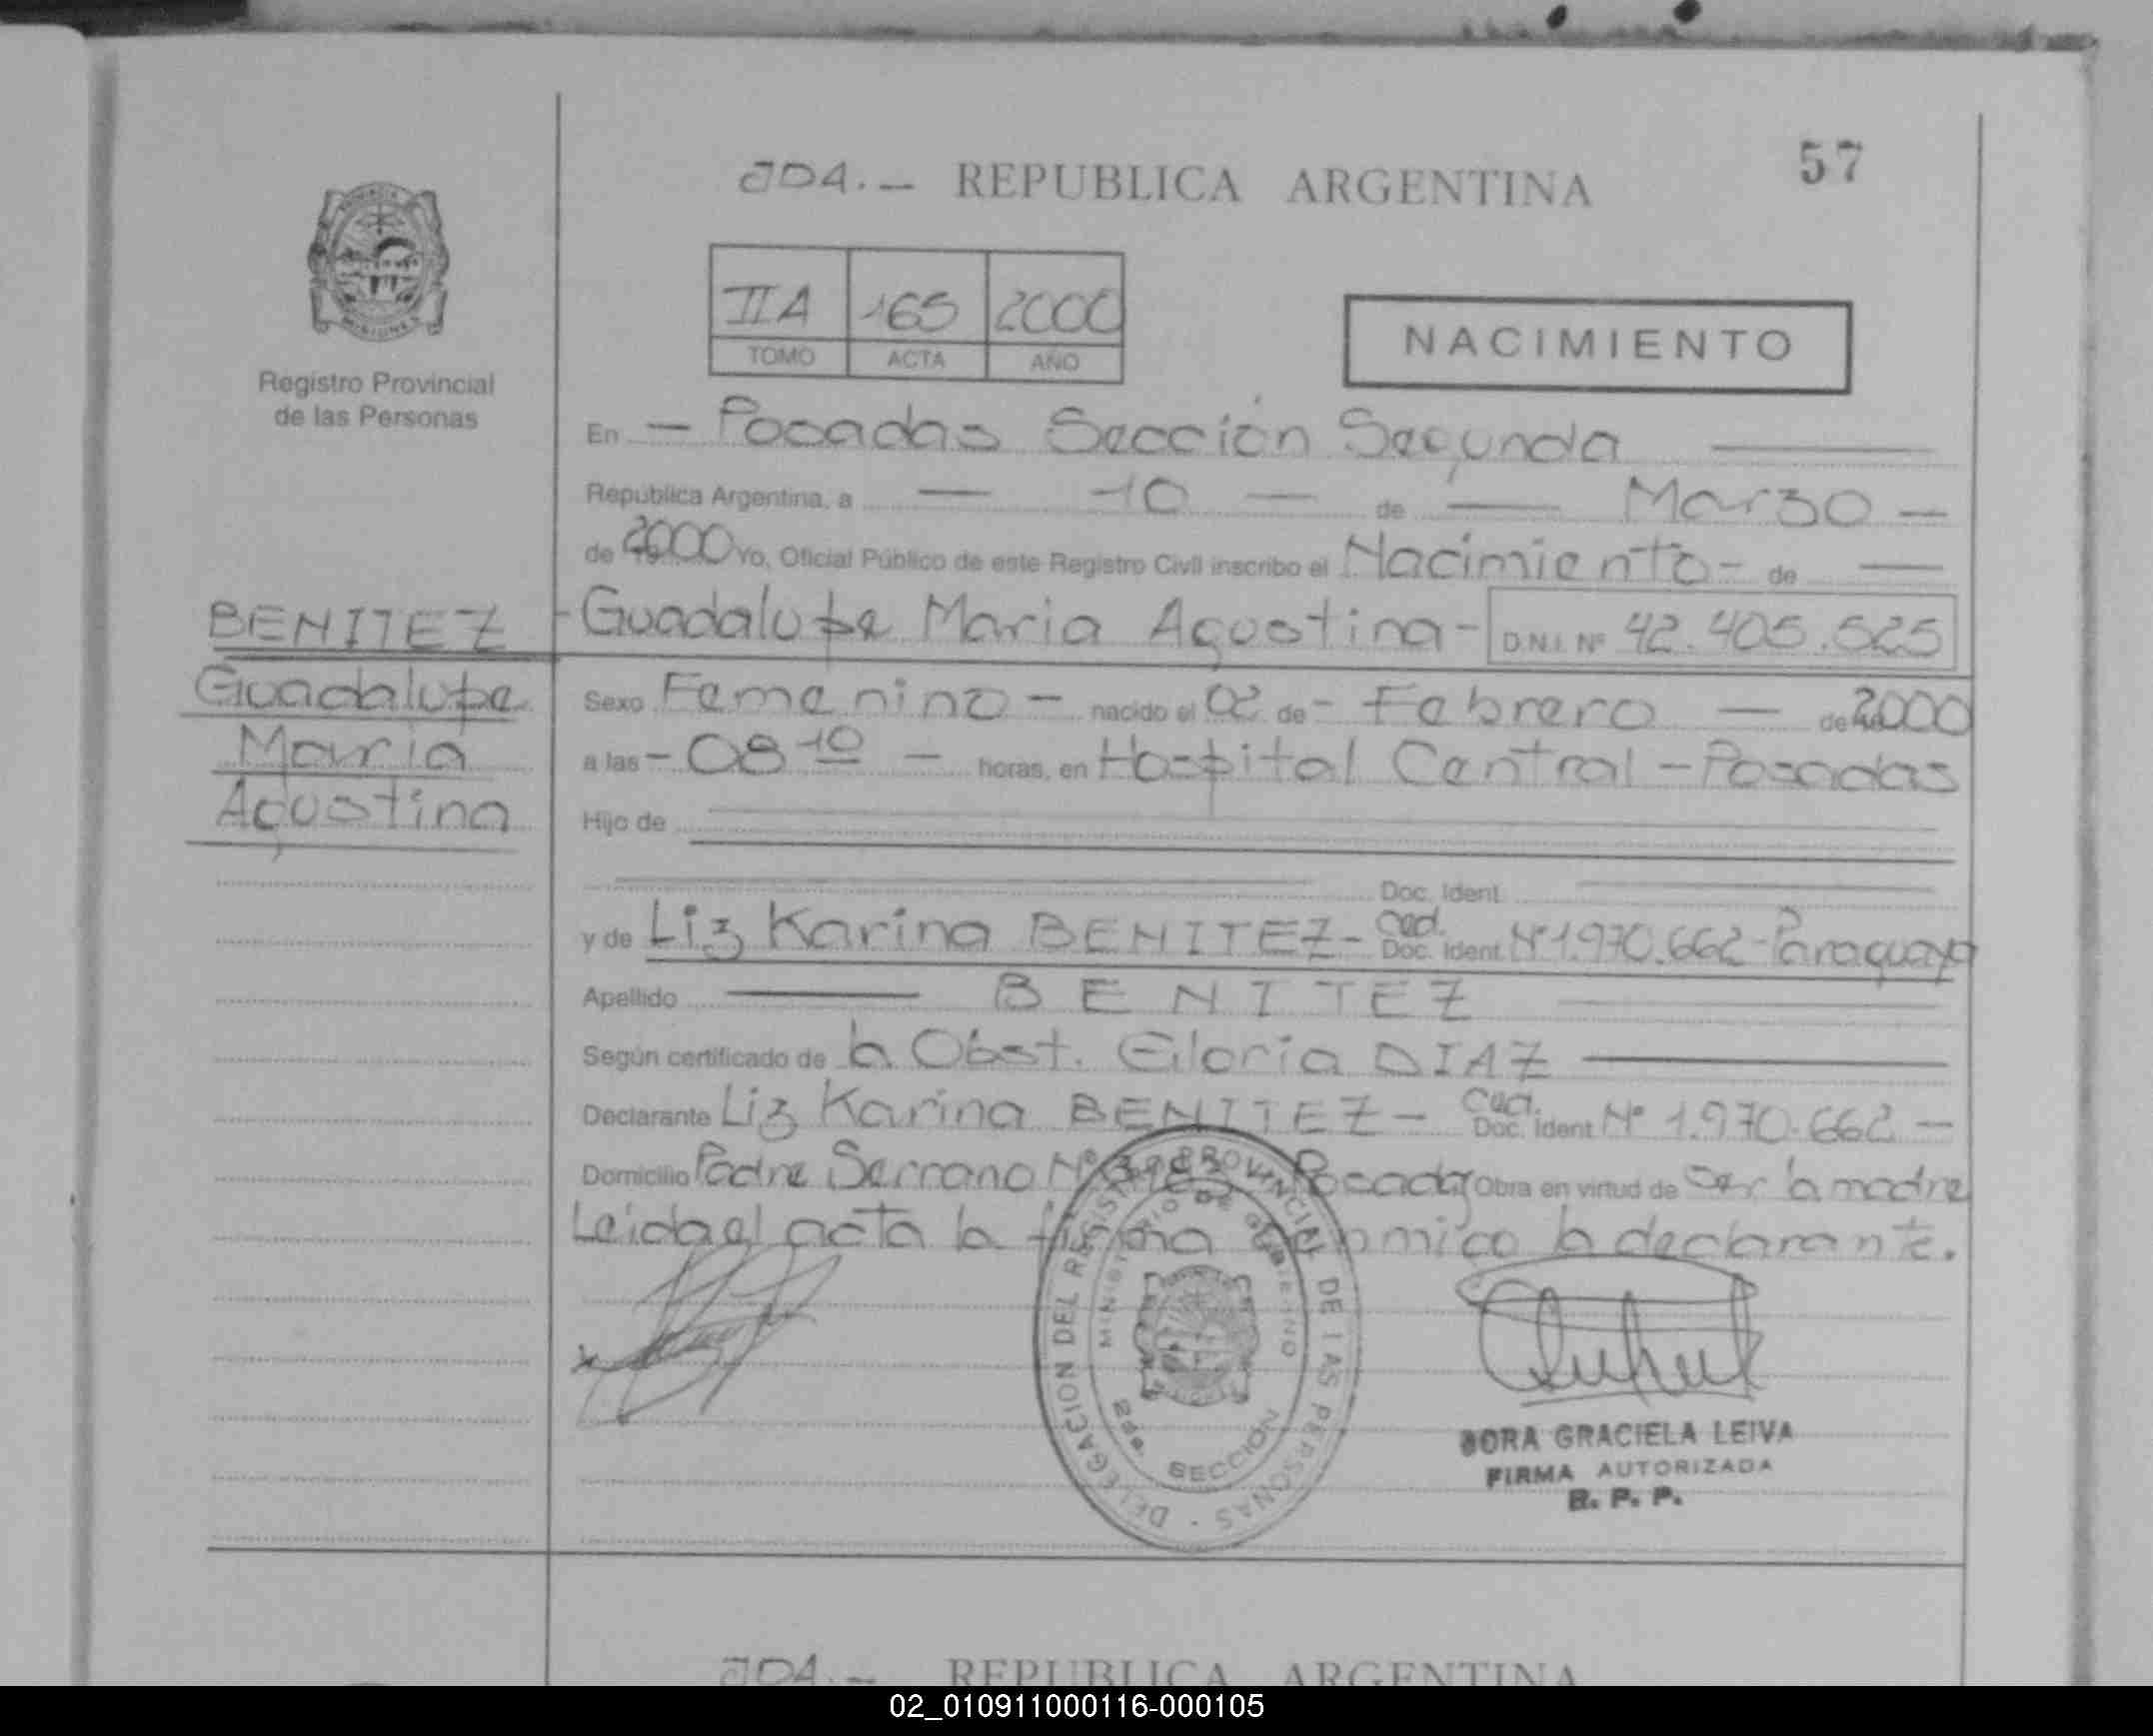 JDA.- REPUBLICA ARGENTINA
57
IIA 165 2000
TOMO ACTA AÑO
NACIMIENTO
Registro Provincial
de las Personas
En - Posadas Sección Segunda
República Argentina, a 10 de Marzo
de 2000 Yo, Oficial Público de este Registro Civil inscribo el Nacimiento - de
BENITEZ
Guadalupe
Maria
Agustina
Guadalupe Maria Agustina - D.N.I. Nº 42.405.525
Sexo Femenino - nacido el 02 de - Febrero - de 2000
a las - 08 10 - horas, en Hospital Central - Posadas
Hijo de
Doc. Ident.
y de Liz Karina BENITEZ - Ced. Doc. Ident. Nº 1.970.662 - Paraguaya
Apellido BENITEZ
Según certificado de la Obst. Gloria DIAZ
Declarante Liz Karina BENITEZ - Ced. Doc. Ident. Nº 1.970.662 -
Domicilio Padre Serrano Nº Posadas Obra en virtud de ser la madre
Leida el acta la firma conmigo la declarante.
DELEGACION DEL REGISTRO PROVINCIAL DE LAS PERSONAS
MINISTERIO DE GOBIERNO
SECCION
GRACIELA LEIVA
FIRMA AUTORIZADA
R. P. P.
JDA.- REPUBLICA ARGENTINA
02_010911000116-000105